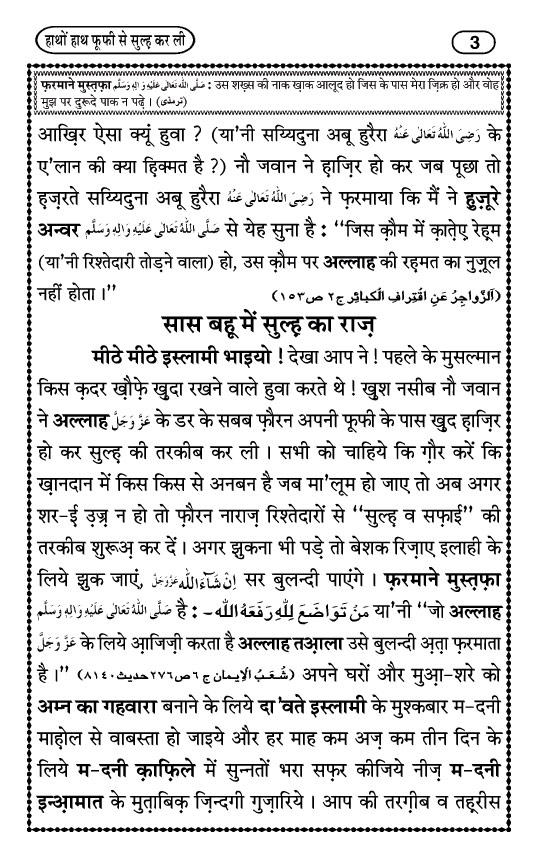 हाथों हाथ फूफी से सुल्ह़ कर ली
3
फ़रमाने मुस्त़फ़ा صَلَّى اللهُ تَعَالٰى عَلَيْهِ وَاٰلِهٖ وَسَلَّم : उस शख़्स की नाक ख़ाक आलूद हो जिस के पास मेरा ज़िक्र हो और वोह
मुझ पर दुरूदे पाक न पढ़े । (ترمذی)
आख़िर ऐसा क्यूं हुवा ? (या'नी सय्यिदुना अबू हुरैरा رَضِىَ اللهُ تَعَالٰى عَنْهُ के
ए'लान की क्या ह़िक्मत है ?) नौ जवान ने ह़ाज़िर हो कर जब पूछा तो
ह़ज़रते सय्यिदुना अबू हुरैरा رَضِىَ اللهُ تَعَالٰى عَنْهُ ने फ़रमाया कि मैं ने हुज़ूरे
अन्वर صَلَّى اللهُ تَعَالٰى عَلَيْهِ وَاٰلِهٖ وَسَلَّم से येह सुना है : "जिस क़ौम में क़ात़ेए़ रेह़म
(या'नी रिश्तेदारी तोड़ने वाला) हो, उस क़ौम पर अल्लाह की रह़मत का नुज़ूल
नहीं होता ।" (اَلزَّوَاجِرُ عَنِ اقْتِرَافِ الْكَبَائِر ج٢ ص١٥٣)
सास बहू में सुल्ह़ का राज़
मीठे मीठे इस्लामी भाइयो ! देखा आप ने ! पहले के मुसल्मान
किस क़दर ख़ौफ़े ख़ुदा रखने वाले हुवा करते थे ! ख़ुश नसीब नौ जवान
ने अल्लाह عَزَّوَجَلَّ के डर के सबब फ़ौरन अपनी फूफी के पास ख़ुद ह़ाज़िर
हो कर सुल्ह़ की तरकीब कर ली । सभी को चाहिये कि ग़ौर करें कि
ख़ानदान में किस किस से अनबन है जब मा'लूम हो जाए तो अब अगर
शर-ई उ़ज़्र न हो तो फ़ौरन नाराज़ रिश्तेदारों से "सुल्ह़ व सफ़ाई" की
तरकीब शुरूअ़ कर दें । अगर झुकना भी पड़े तो बेशक रिज़ाए इलाही के
लिये झुक जाएं, اِنْ شَآءَ اللّٰه عَزَّوَجَلَّ सर बुलन्दी पाएंगे । फ़रमाने मुस्त़फ़ा
صَلَّى اللهُ تَعَالٰى عَلَيْهِ وَاٰلِهٖ وَسَلَّم है : مَنْ تَوَاضَعَ لِلّٰهِ رَفَعَهُ اللّٰه- या'नी "जो अल्लाह
عَزَّوَجَلَّ के लिये आजिज़ी करता है अल्लाह तआ़ला उसे बुलन्दी अ़त़ा फ़रमाता
है ।" (شُعَبُ الْاِيمان ج ٦ ص٢٧٦ حديث ٨١٤٠) अपने घरों और मुआ़-शरे को
अम्न का गहवारा बनाने के लिये दा'वते इस्लामी के मुश्कबार म-दनी
माह़ोल से वाबस्ता हो जाइये और हर माह कम अज़ कम तीन दिन के
लिये म-दनी क़ाफ़िले में सुन्नतों भरा सफ़र कीजिये नीज़ म-दनी
इन्आ़मात के मुत़ाबिक़ ज़िन्दगी गुज़ारिये । आप की तरग़ीब व तह़रीस